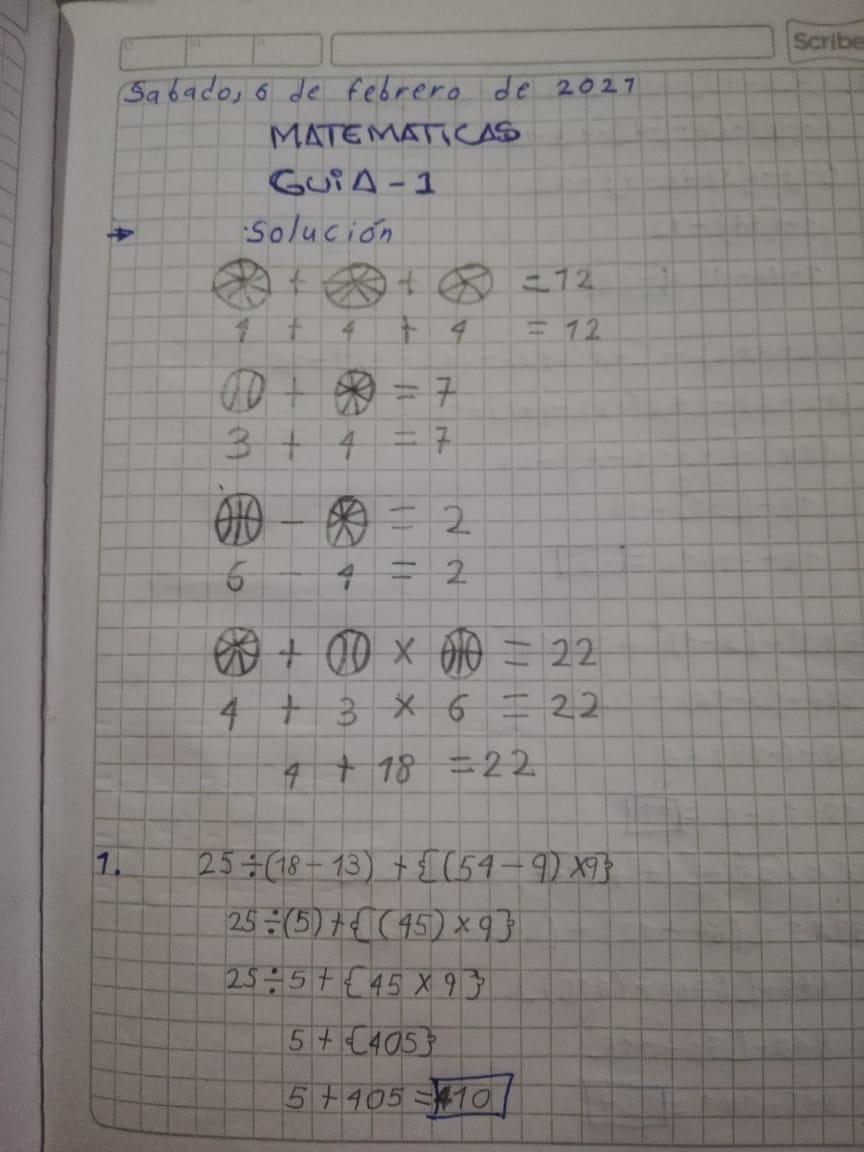 Scribe
Sabado, 6 de febrero de 2021
MATEMATICAS
GUIA - 1
Solución
+ + = 12
4 + 4 + 4 = 12
+ = 7
3 + 4 = 7
- = 2
6 - 4 = 2
+ × = 22
4 + 3 × 6 = 22
4 + 18 = 22
1. 25÷(18-13) + {(54-9)×9}
25÷(5)+{(45)×9}
25÷5+{45×9}
5+{405}
5+405=410